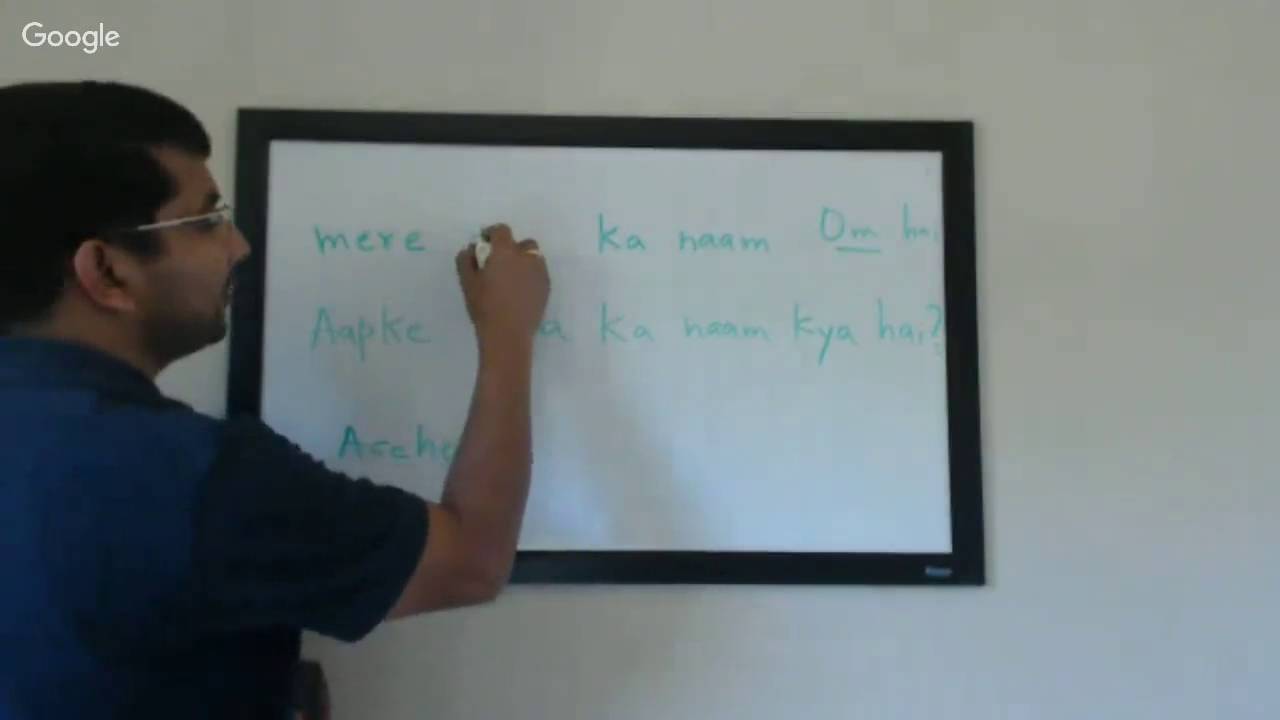 Google
mere ka naam Om hai
Aapke ka naam kya hai?